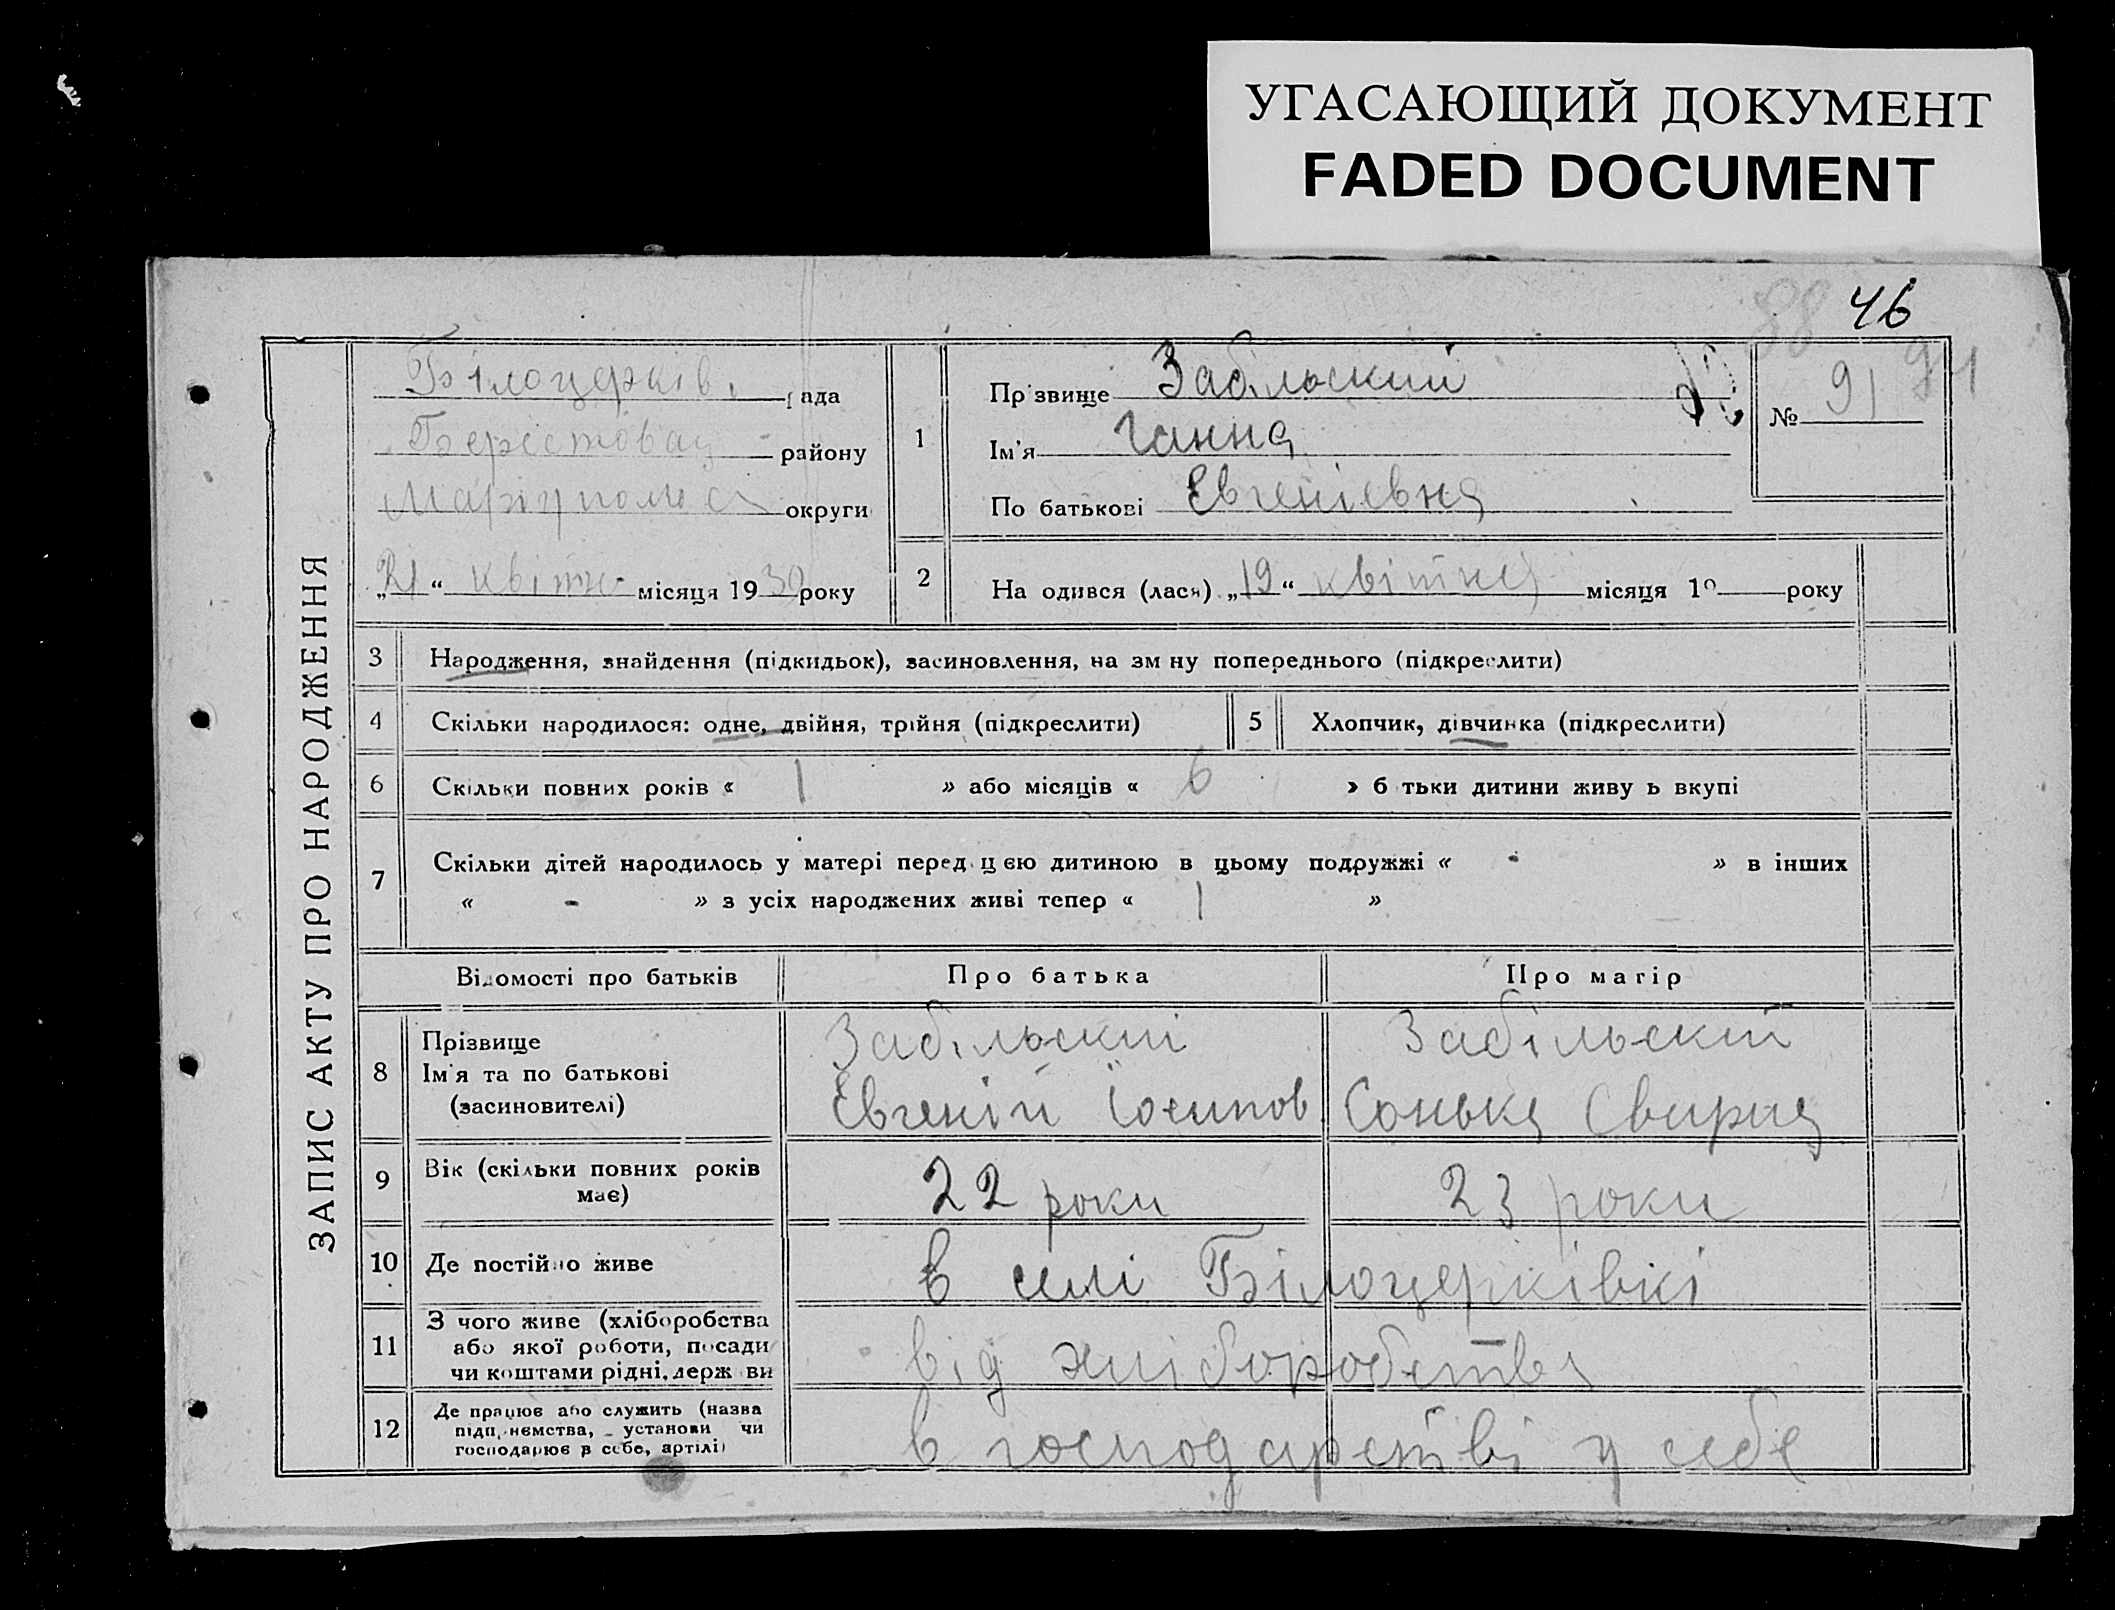 УГАСАЮЩИЙ ДОКУМЕНТ
FADED DOCUMENT
46
88
ЗАПИС АКТУ ПРО НАРОДЖЕННЯ
Білоцерків. рада
Берестовец - району
Маріупольс округи
„21“ квітн- місяця 1930 року
1
Пр звище Забільский
Ім'я Ганна
По батькові Євгенієвна
№ 91 91
2 На одився (лася) „19“ квітня місяця 19 року
3 Народження, знайдення (підкидьок), засиновлення, на зм ну попереднього (підкреслити)
4 Скільки народилося: одне, двійня, трійня (підкреслити) 5 Хлопчик, дівчинка (підкреслити)
6 Скільки повних років « 1 » або місяців « 6 » б тьки дитини живу ь вкупі
7 Скільки дітей народилось у матері перед цєю дитиною в цьому подружжі « - » в інших
« - » з усіх народжених живі тепер « 1 »
Відомості про батьків Про батька Про матір
8 Прізвище Забільский Забільский
Ім'я та по батькові
(засиновителі) Євгеній Іосипов Сонька Свирид
9 Вік (скільки повних років
має) 22 роки 23 роки
10 Де постійно живе в селі Білоцерківкі
11 З чого живе (хліборобства
або якої роботи, посади
чи коштами рідні, держ ви від хліборобства
12 Де працює або служить (назва
підп немства, установи чи
господарює в себе, артілі) в господарстві у себе